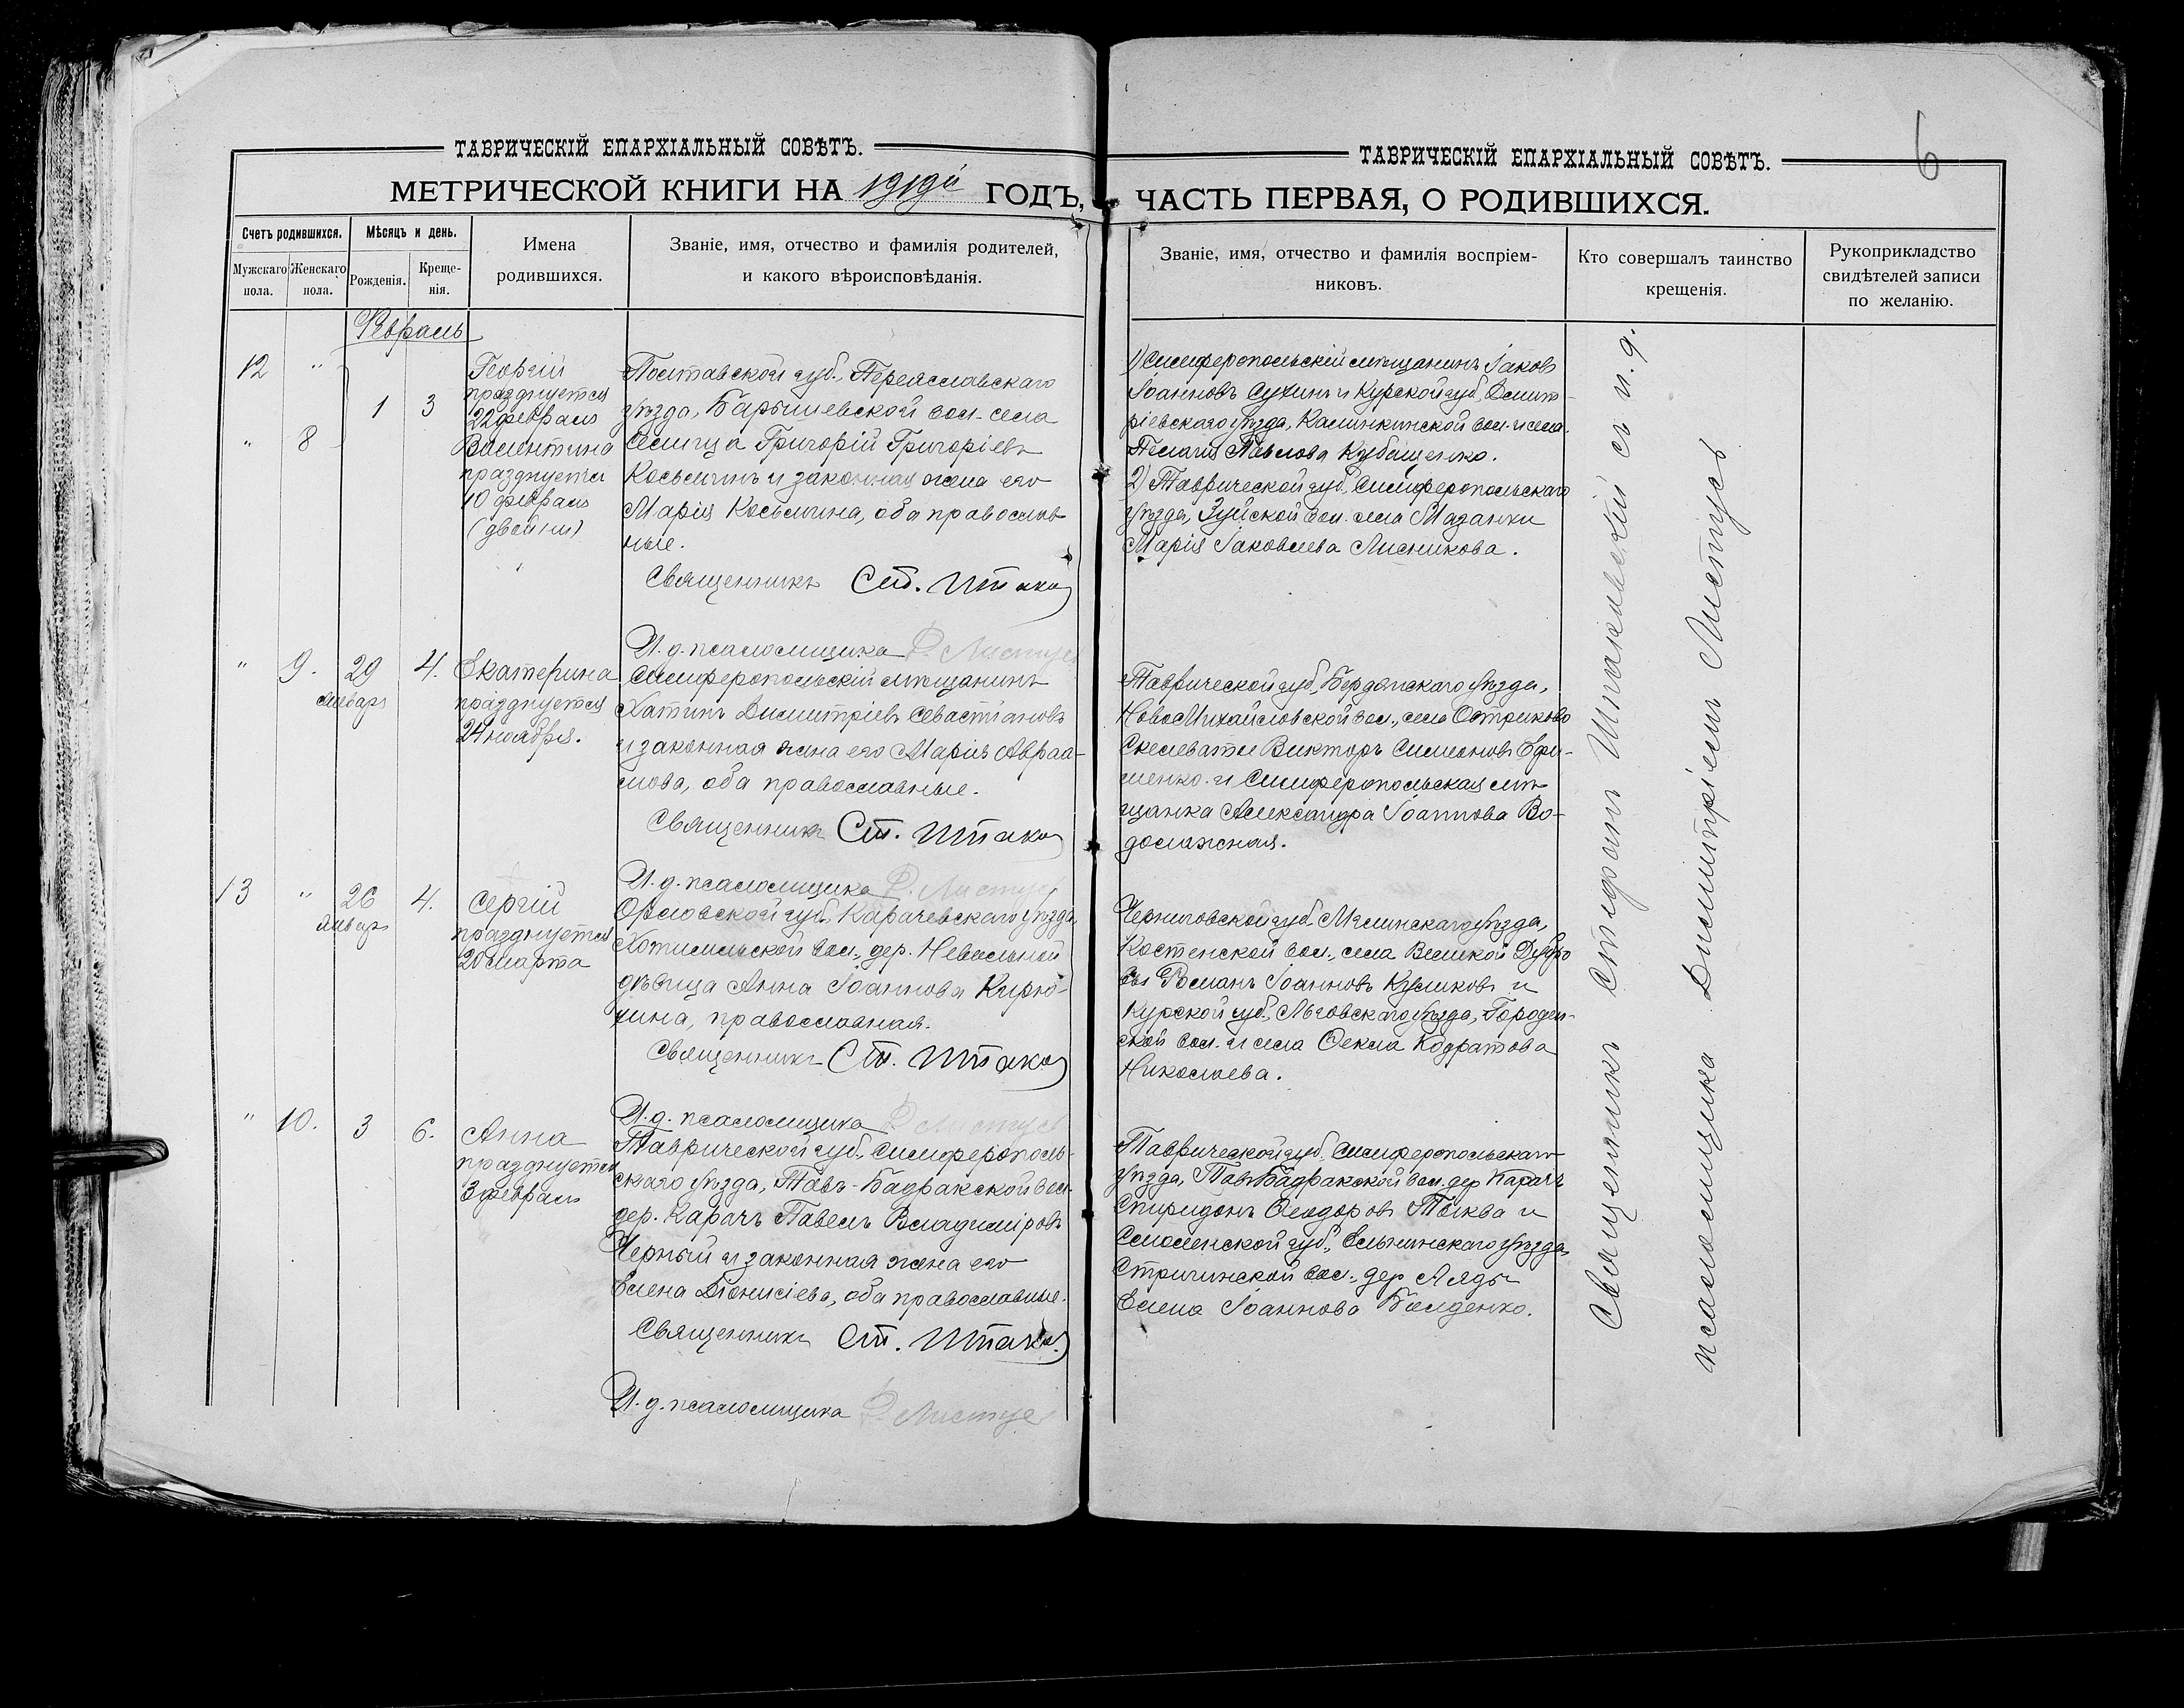 ТАВРИЧЕСКІЙ ЕПАРХІАЛЬНЫЙ СОВѢТЪ.
МЕТРИЧЕСКОЙ КНИГИ НА 1919й ГОДЪ,
Счетъ родившихся.
Мѣсяцъ и день.
Мужскаго пола.
Женскаго пола.
Рожденія.
Креще-
нія.
Имена
родившихся.
Званіе, имя, отчество и фамилія родителей,
и какого вѣроисповѣданія.
Февраль
12 "
1 3
" 8
Георгій
празднуется
22 февраля
Валентина
празднуется
10 февраля
(двойни)
Полтавской губ., Переяславскаго
уѣзда, Барышевской вол. села
Селища Григорій Григоріевъ
Косьминъ и законная жена его
Марія Косьмина, оба православ
ные.
Священникъ Ст. Шпако
И. д. псаломщика Д. Листус
" 9. 29 4.
январь
Екатерина
празднуется
24 ноября.
Симферопольскій мѣщанинъ
Хатинъ Димитріевъ Севастіановъ
и законная жена его Марія Авраа-
мова, оба православные.
Священникъ Ст. Шпако
И. д. псаломщика Д. Листус
13 " 26 4.
январь
Сергій
празднуется
20 марта
Орловской губ., Карачевскаго уѣзда,
Хотимльской вол., дер. Невольной
дѣвица Анна Іоаннова Кирю-
хина, православная.
Священникъ Ст. Шпако
И. д. псаломщика Д. Листус
" 10. 3 6.
Анна
празднуется
3 февраля
Таврической губ., Симферополь-
скаго уѣзда, Тавъ-Бадракской вол.
дер. Карачъ Павелъ Владиміровъ
Черный и законная жена его
Елена Діонисіева, оба православные.
Священникъ Ст. Шпако
И. д. псаломщика Д. Листус
ТАВРИЧЕСКІЙ ЕПАРХІАЛЬНЫЙ СОВѢТЪ.
6
ЧАСТЬ ПЕРВАЯ, О РОДИВШИХСЯ.
Званіе, имя, отчество и фамилія воспріем-
никовъ.
Кто совершалъ таинство
крещенія.
Рукоприкладство
свидѣтелей записи
по желанію.
1) Симферопольскій мѣщанинъ Іаковъ
Іоанновъ Сухинъ и Курской губ., Дмит-
ріевскаго уѣзда, Калинкинской вол. и села
Пелагія Павлова Кубащенко.
2) Таврической губ., Симферопольскаго
уѣзда, Зуйской вол. села Мазанки
Марія Іаковлева Лисникова.
Таврической губ., Бердянскаго уѣзда,
НовоМихайловской вол., села Остриково
Скелеватое Викторъ Симеоновъ Ефи-
менко и Симферопольская мѣ
щанка Александра Іоаннова Во-
долажная.
Черниговской губ. Мглинскаго уѣзда,
Костенской вол., села Великой Дубро
вы Романъ Іоанновъ Куликовъ и
Курской губ., Льговскаго уѣзда, Городен-
ской вол. и села Ѳекла Кодратова
Николаева.
Таврической губ., Симферопольскаго
уѣзда, Тавъ Бадракской вол. дер Карачъ
Спиридонъ Ѳеодоровъ Тыква и
Смоленской губ., Ельнинскаго уѣзда,
вол., дер Ляды
Елена Іоаннова Болденко.
Священникъ Стефанъ Шпаковскій съ и. д.
псаломщика Димитріемъ Листусъ